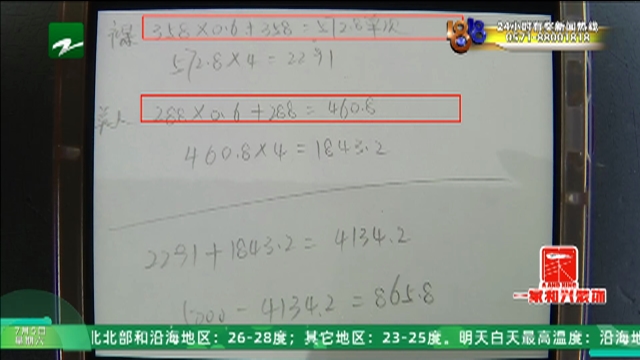 358×0.6+358=572.8单次
24小时有奖新闻热线
0571-88001818
572.8×4=2291
288×0.6+288=460.8
460.8×4=1843.2
2291+1843.2=4134.2
5000-4134.2=865.8
一家和兴装饰
7月5日
星期六
北北部和沿海地区：26-28度；其它地区：23-25度。明天白天最高温度：沿海地